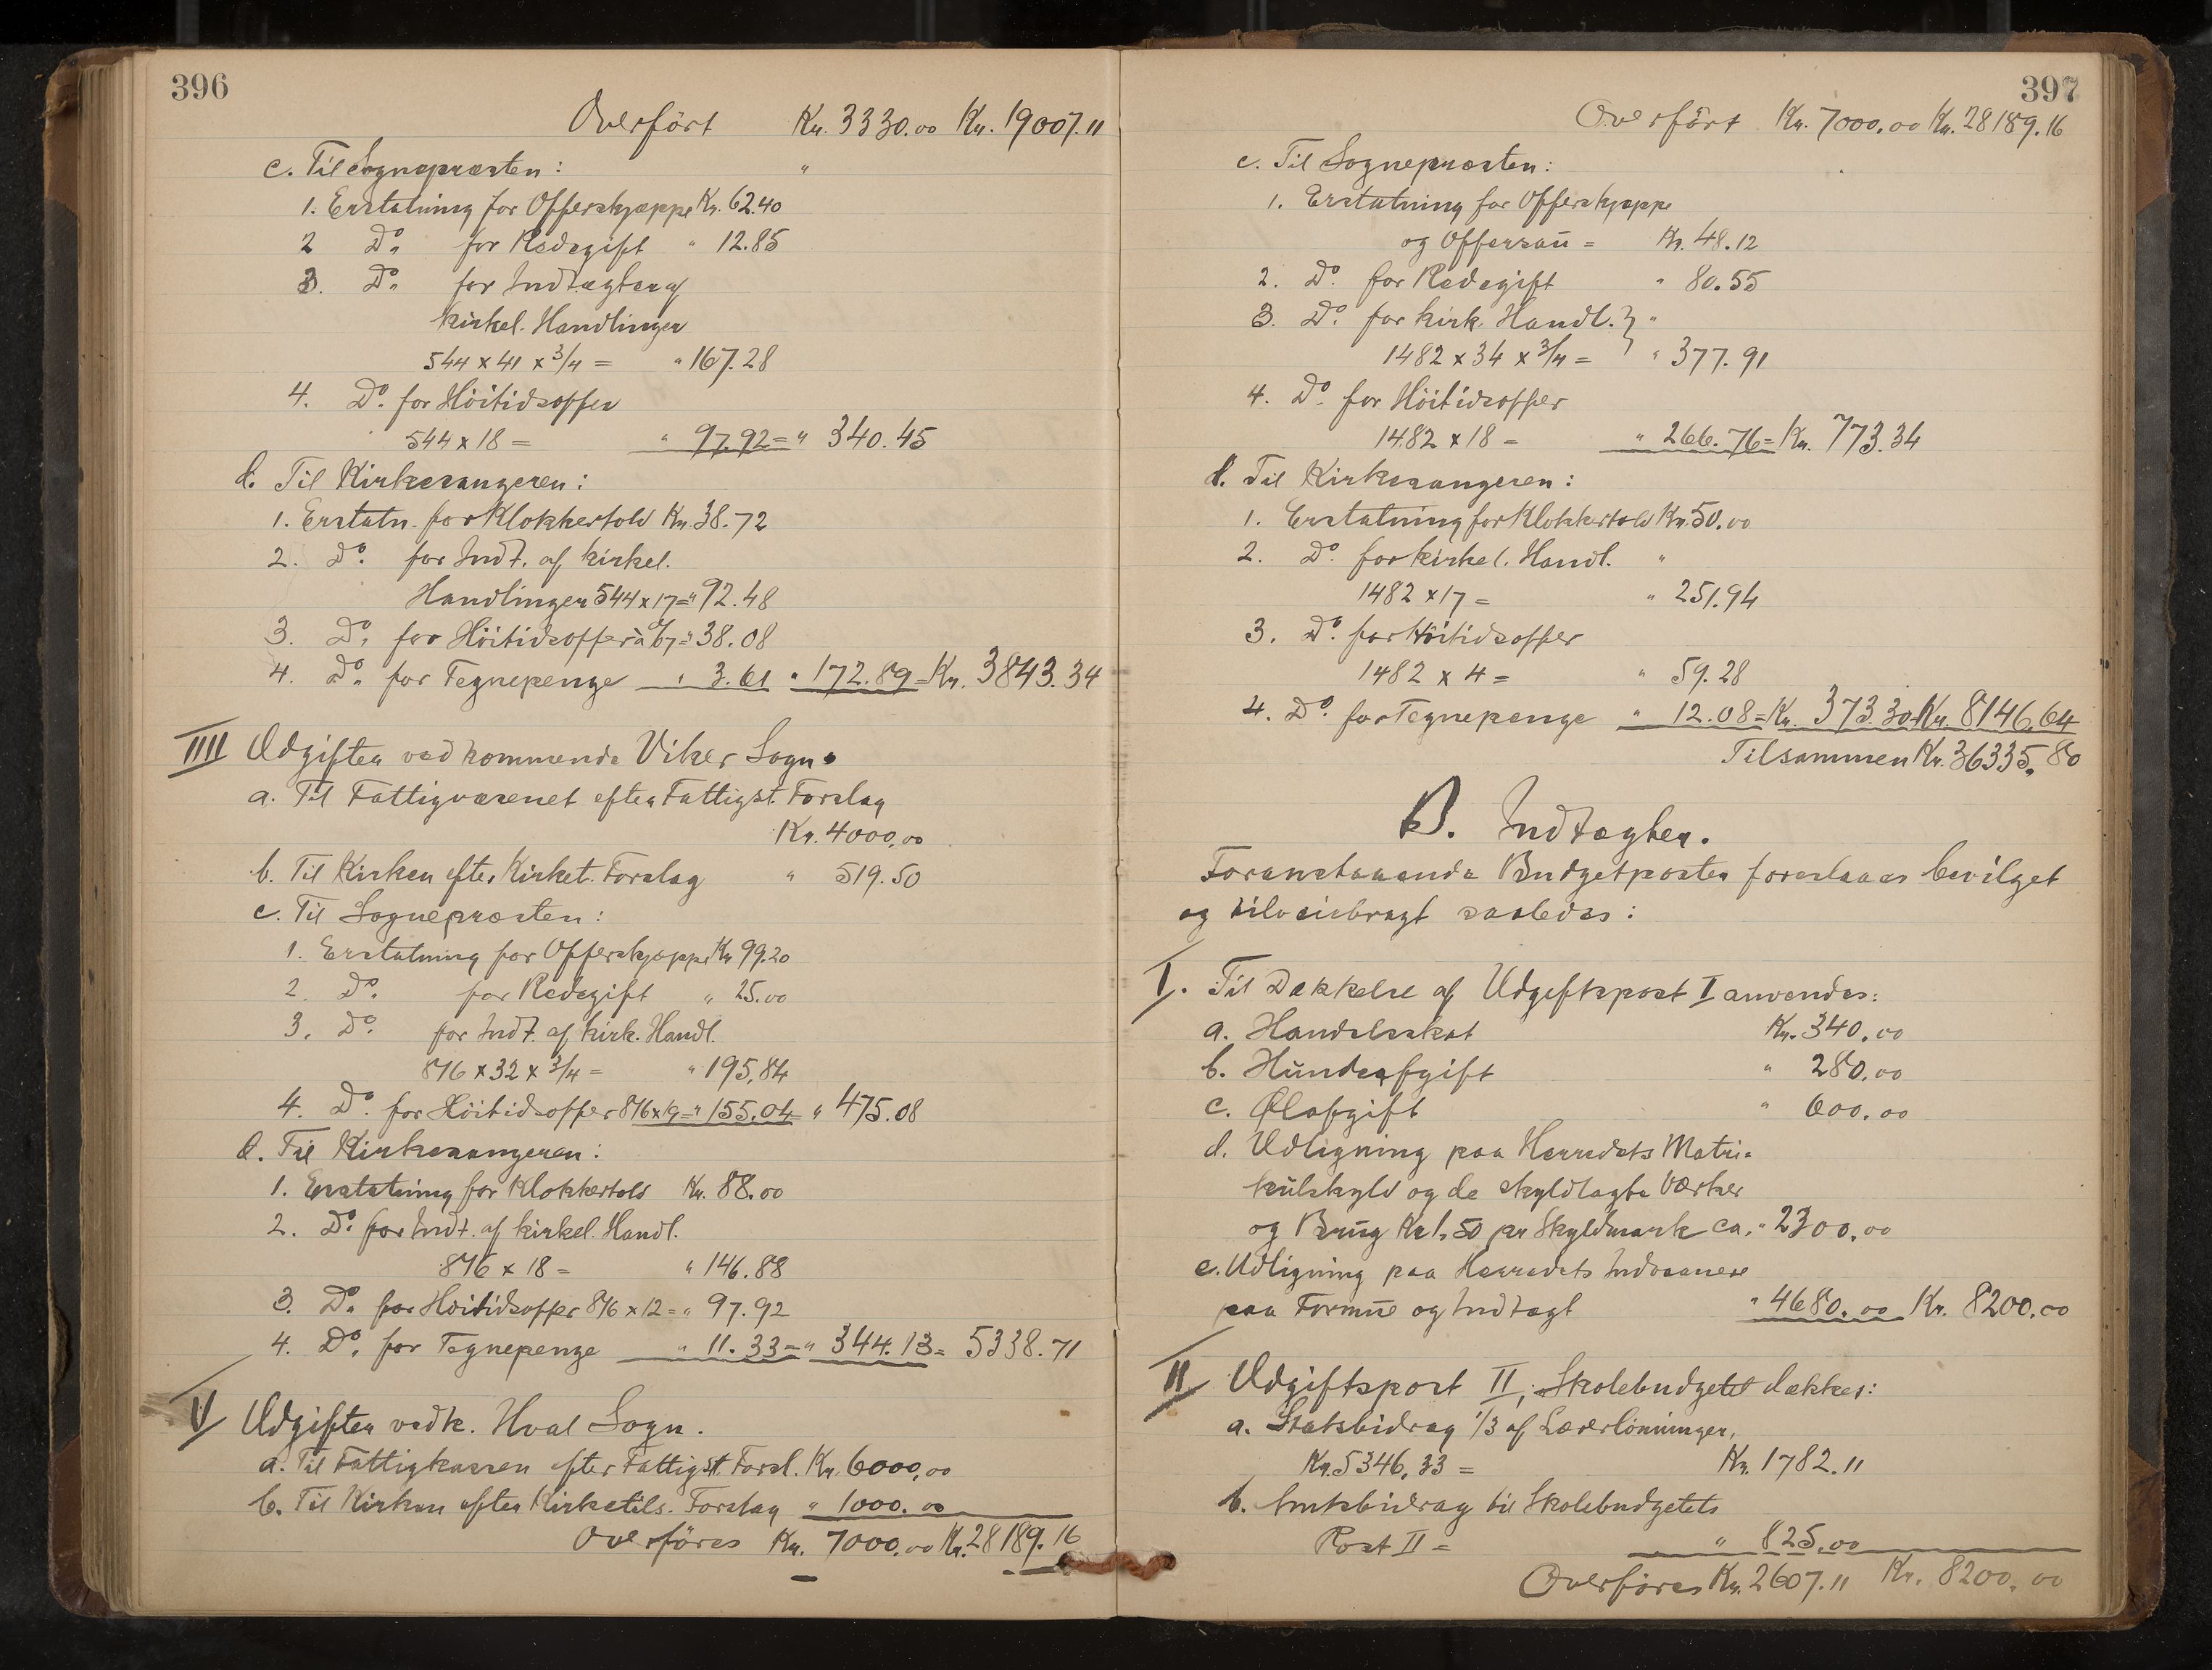 396
Overført Kr. 3330.00 Kr. 19007.11
c. Til Sognepræsten: "
1. Erstatning for Offerskjæppe Kr. 62.40
2 Do. for Redegift " 12.85
3. Do. for Indtægter af
kirkel. Handlinger
544 x 41 x 3/4 = " 167.28
4. Do. for Höitidsoffer
544 x 18 = " 97.92 = " 340.45
d. Til Kirkesangeren:
1. Erstatn. for Klokkertold Kr. 38.72
2. Do. for Indt. af kirkel.
Handlinger 544 x 17 = " 92.48
3. Do. for Höitidsoffer à 7 = " 38.08
4. Do. for Tegnepenge " 3.61 " 172.89 = Kr. 3843.34
IIII Udgifter vedkommende Viker Sogn.
a. Til Fattigvæsenet efter Fattigst. Forslag
Kr. 4000,00
b. Til Kirken efter Kirket. Forslag " 519.50
c. Til Sognepræsten:
1. Erstatning for Offerskjæppe Kr 99.20
2. Do. for Redegift " 25.00
3. Do. for Indt. af kirk. Handl.
816 x 32 x 3/4 = " 195,84
4. Do. for Höitidsoffer 816 x 19 = " 155.04 = " 475.08
d. Til Kirkesangeren:
1. Erstatning for Klokkertold Kr. 88.00
2. Do. for Indt. af kirkel. Handl.
816 x 18 = " 146.88
3. Do. for Höitidsoffer 816 x 12 = " 97.92
4. Do. for Tegnepenge " 11.33 = " 344.13 = 5338.71
V Udgifter vedk. Hval Sogn.
a. Til Fattigkassen efter Fattigst. Forsl. Kr. 6000,00
b. Til Kirken efter Kirketils. Forslag " 1000.00
Overföres Kr. 7000.00 Kr. 28189.16
397
Overført Kr. 7000.00 Kr. 28189.16
c. Til Sognepræsten:
1. Erstatning for Offerskjæppe
og Offersaü = Kr. 48.12
2. Do. for Redegift " 80.55
3. Do. for kirk. Handl. } "
1482 x 34 x 3/4 = " 377.91
4. Do. for Höitidsoffer
1482 x 18 = " 266.76 = Kr. 773.34
d. Til Kirkesangeren:
1. Erstatning for Klokkertold Kr. 50.00
2. Do. for kirkel. Handl. "
1482 x 17 = " 251.94
3. Do. for Höitidsoffer
1482 x 4 = " 59.28
4. Do. for Tegnepenge " 12.08 = Kr. 373.30 Kr. 8146.64
Tilsammen Kr. 36335.80
B. Indtægter.
Foranstaaende Budgetposter foreslaaes bevilget
og tilveiebragt saaledes:
I. Til Dækkelse af Udgiftspost I anvendes:
a. Handelsskat Kr. 340.00
b. Hündeafgift " 280.00
c. Ølafgift " 600.00
d. Udligning paa Herredets Matri-
külskyld og de skyldlagte Værker
og Brüg Kr 1.50 pr Skyldmark ca. " 2300.00
e. Udligning paa Herredets Indvaanere
paa Formüe og Indtægt " 4680.00 Kr. 8200.00
II Udgiftspost II, Skolebudgetet dækkes:
a. Statsbidrag 1/3 af Lærerlönninger,
Kr. 5346.33 = Kr. 1782.11
b. Amtsbidrag til Skolebudgetets
Post II = " 825.00
Overföres Kr. 2607.11 Kr. 8200.00